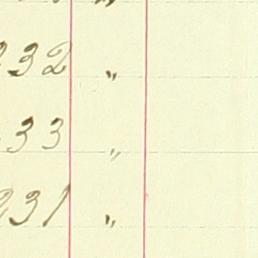 232 "
33 "
231 "